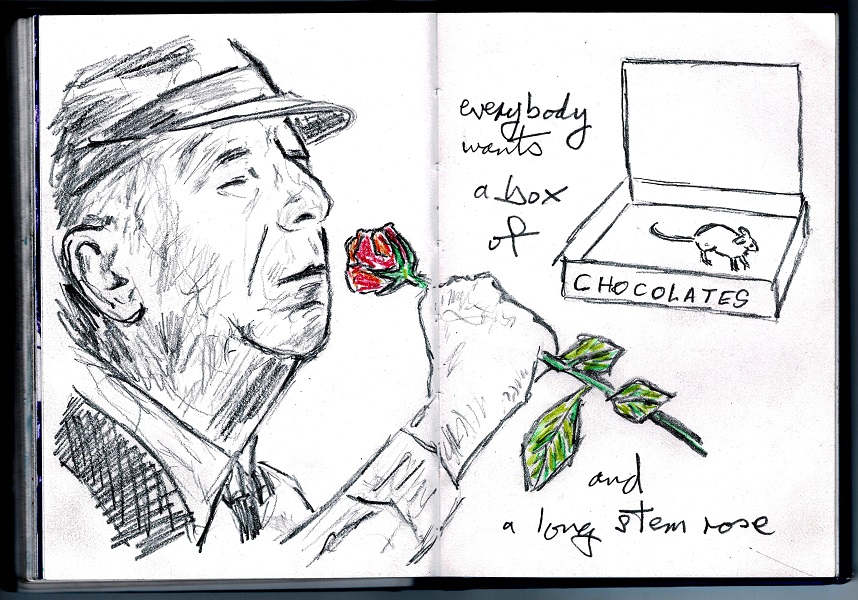 everybody
wants
a box
of
CHOCOLATES
and
a long stem rose